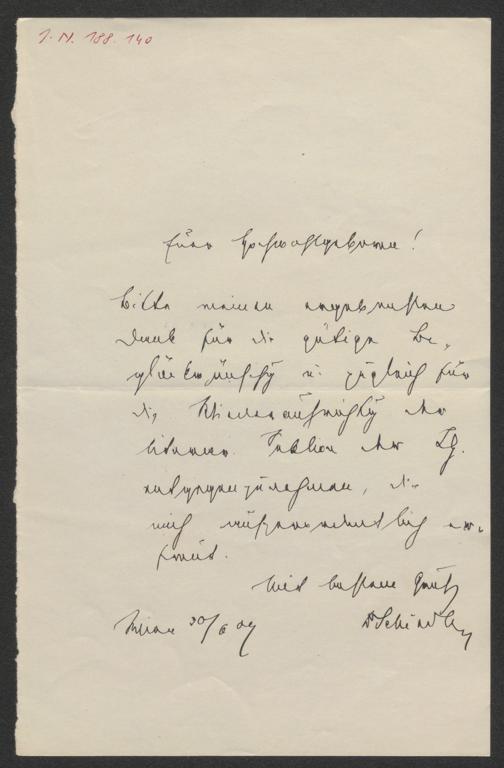 J. N. 188.140
Euer Hochwohlgeboren!
Bitte meinen ergebensten
Dank für die gütige Be-
glückwünschg u. zugleich für
die Wiederaufrichtg der
literar. Sektion der LG.
entgegenzunehmen, die
mich außerordentlich er-
freut.
Mit bestem Gruß
Wien 30/6 09 DrSchindler